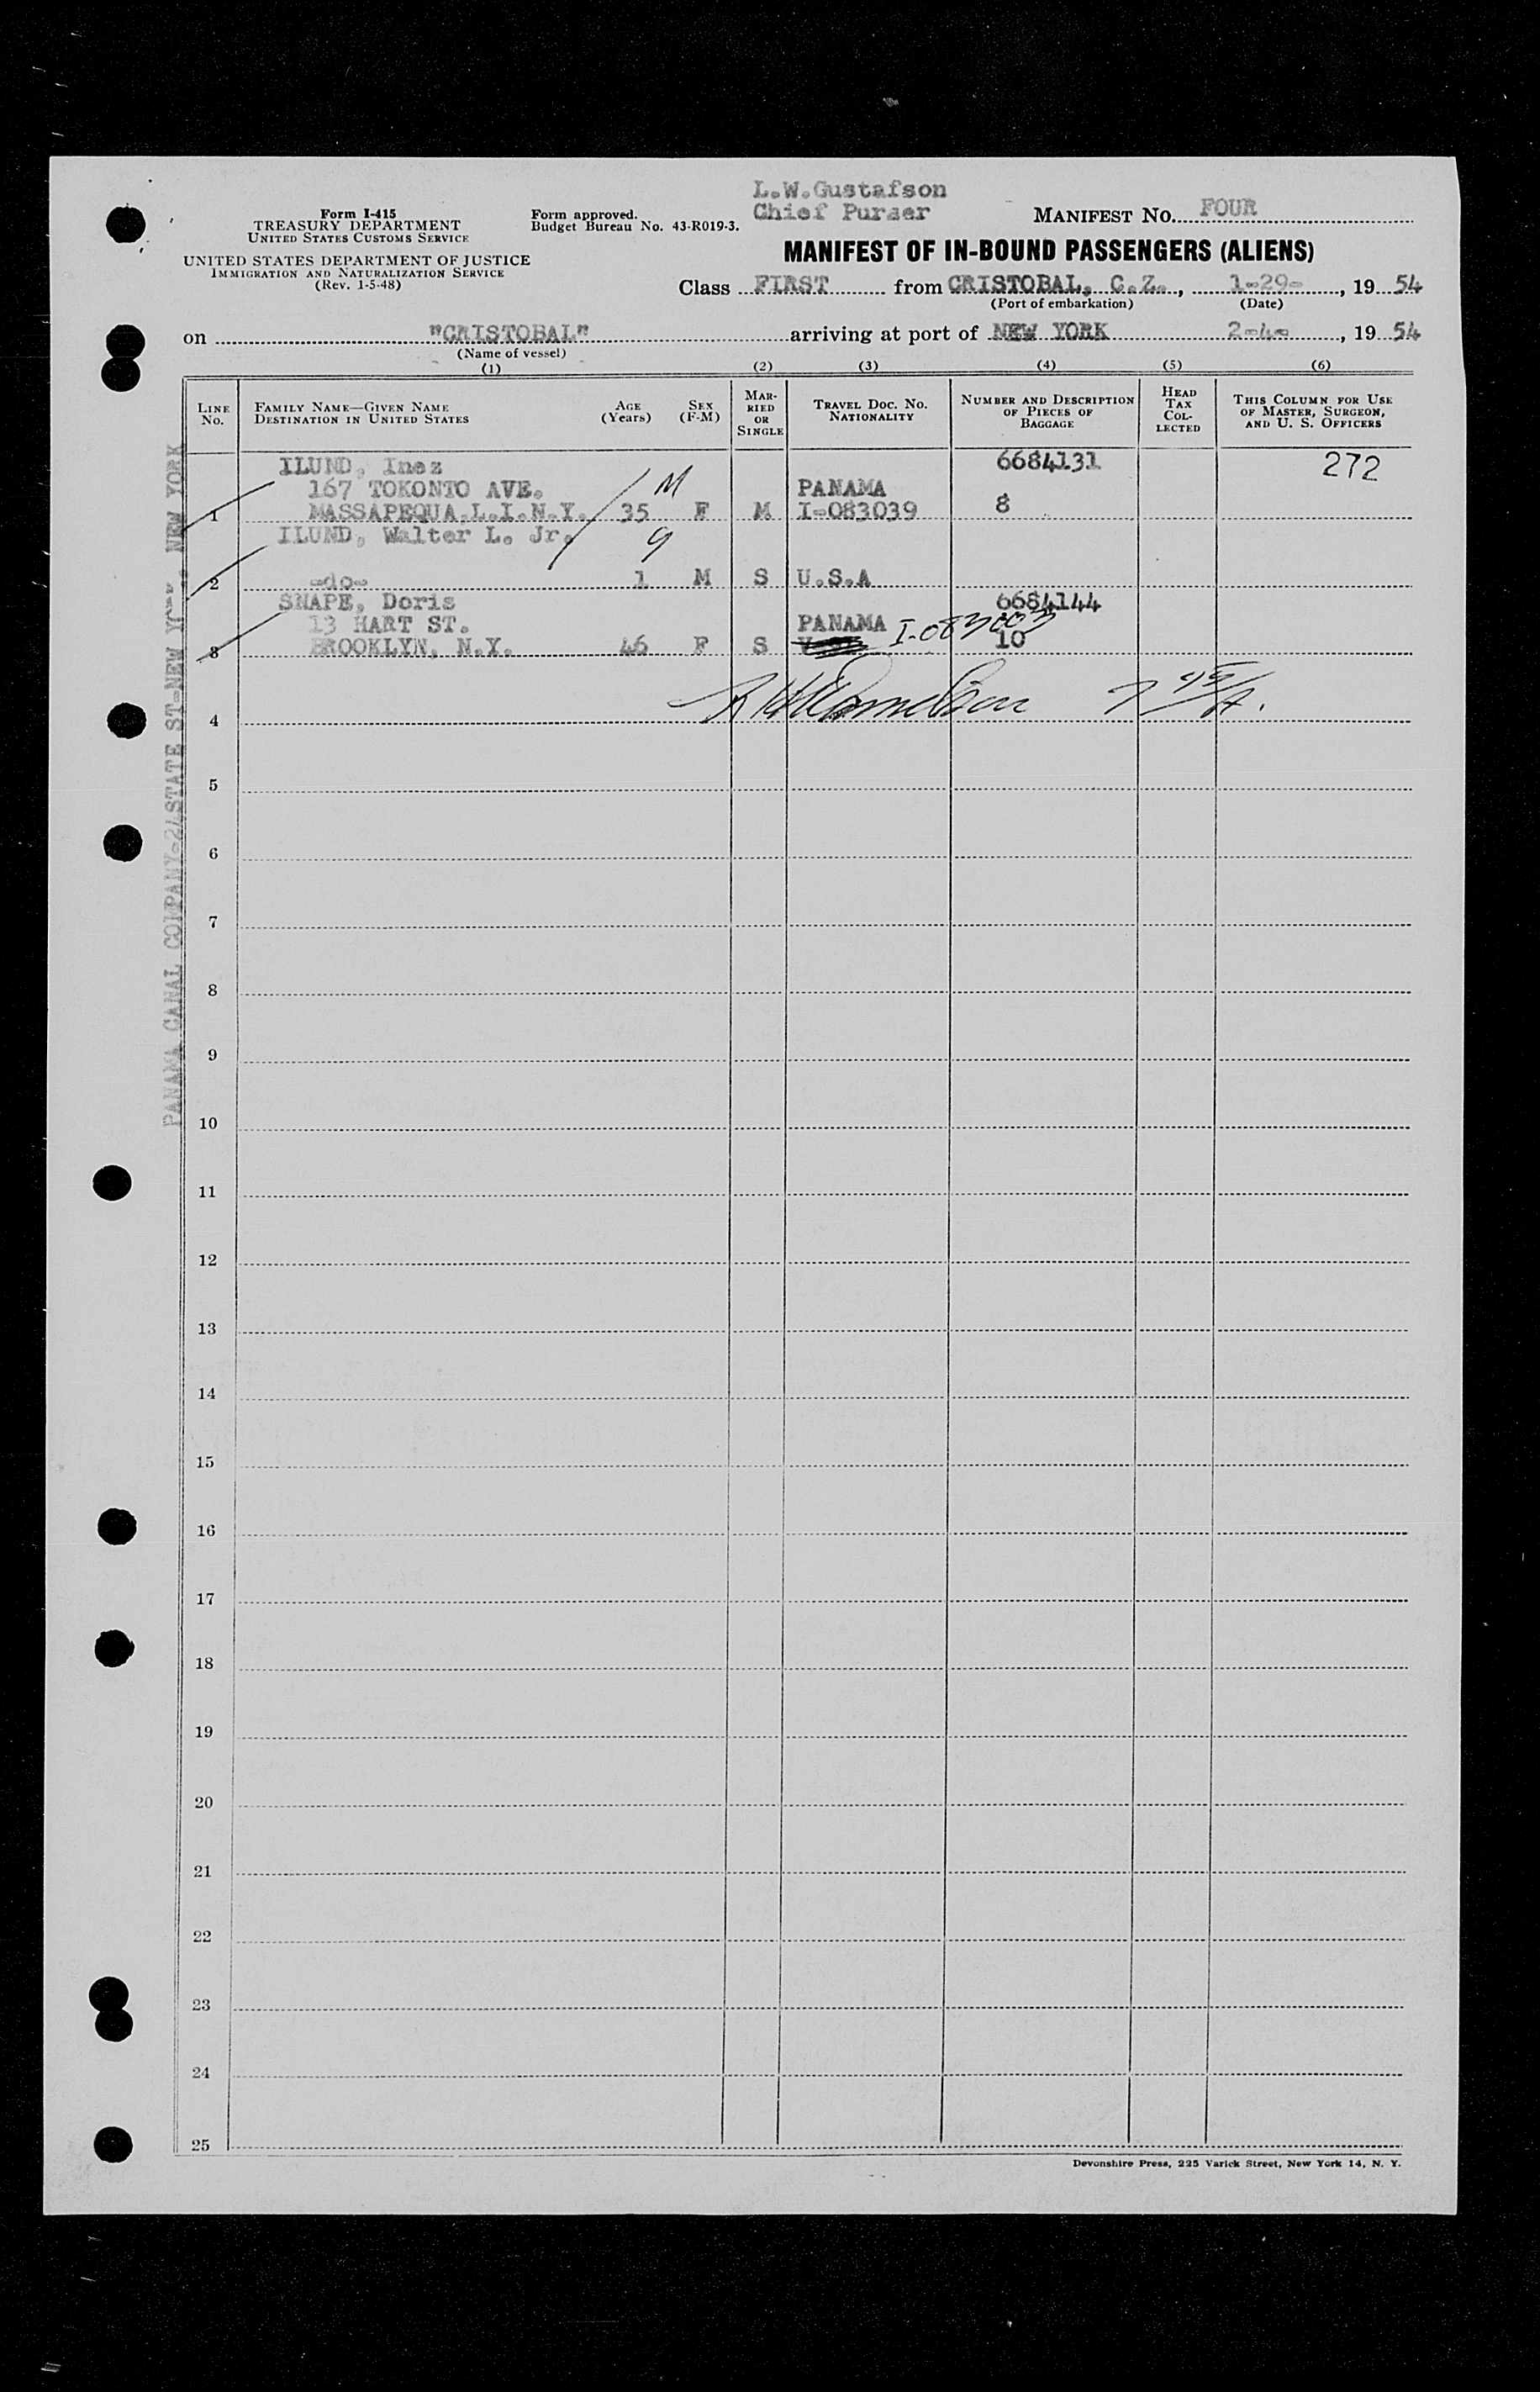 L.W.Gustafson
Chief Purser
Form I-415
TREASURY DEPARTMENT
UNITED STATES CUSTOMS SERVICE
UNITED STATES DEPARTMENT OF JUSTICE
IMMIGRATION AND NATURALIZATION SERVICE
(Rev. 1-5-48)
Form approved.
Budget Bureau No. 43-R019-3.
MANIFEST NO. FOUR
MANIFEST OF IN-BOUND PASSENGERS (ALIENS)
Class FIRST from CRISTOBAL, C.Z., 1-29-, 19 54
(Port of embarkation) (Date)
on "CRISTOBAL" arriving at port of NEW YORK 2-4-, 19 54
(Name of vessel)
(1) (2) (3) (4) (5) (6)
LINE No.
FAMILY NAME—GIVEN NAME
DESTINATION IN UNITED STATES
AGE (Years)
SEX (F-M)
MARRIED OR SINGLE
TRAVEL DOC. NO. NATIONALITY
NUMBER AND DESCRIPTION OF PIECES OF BAGGAGE
HEAD TAX COLLECTED
THIS COLUMN FOR USE OF MASTER, SURGEON, AND U. S. OFFICERS
ILUND, Inez 6684131 272
167 TOKONTO AVE. M PANAMA
1 MASSAPEQUA,L.I.N.Y. 35 F M I-083039 8
ILUND, Walter L. Jr. 9
2 -do- 1 M S U.S.A
SNAPE, Doris 6684144
13 HART ST. PANAMA I-083003
3 BROOKLYN, N.Y. 46 F S 10
4
5
6
7
8
9
10
11
12
13
14
15
16
17
18
19
20
21
22
23
24
25
PANAMA CANAL COMPANY-24STATE ST-NEW NEW YORK
Devonshire Press, 225 Varick Street, New York 14, N. Y.